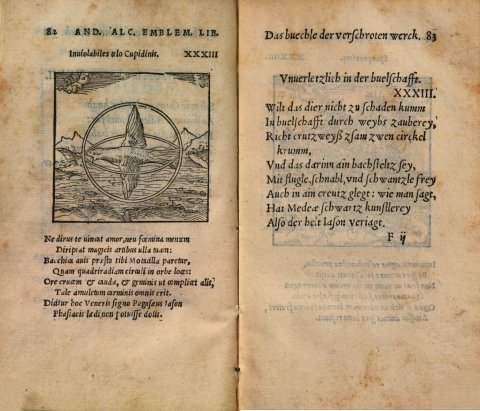 82 AND. ALC. EMBLEM. LIB.
Inuiolabiles telo Cupidinis. XXXIII
Ne dirus te uincat amor, neu fœmina mentem
Diripiat magicis artibus ulla tuam:
Bacchica auis præsto tibi Motacilla paretur,
Quam quadriradiam circuli in orbe loces:
Ore crucem & cauda, & geminis ut complicet alis,
Tale amuletum carminis omnis erit.
Dicitur hoc Veneris signo Pegasæus Iason
Phasiacis lædi non potuisse dolis.
Das buechle der verschroten werck. 83
Vnuerletzlich in der buelschafft.
XXXIII.
Wilt das dier nicht zu schaden kumm
In buelschafft durch weybs zauberey,
Richt creutzweyß zsam zwen circkel
krumm,
Vnd das darinn ain bachsteltz sey,
Mit flugle, schnabl, vnd schwantzle frey
Auch in ain creutz glegt: wie man sagt,
Hat Medeæ schwartz kunstlerey
Also der helt Iason veriagt.
F ij